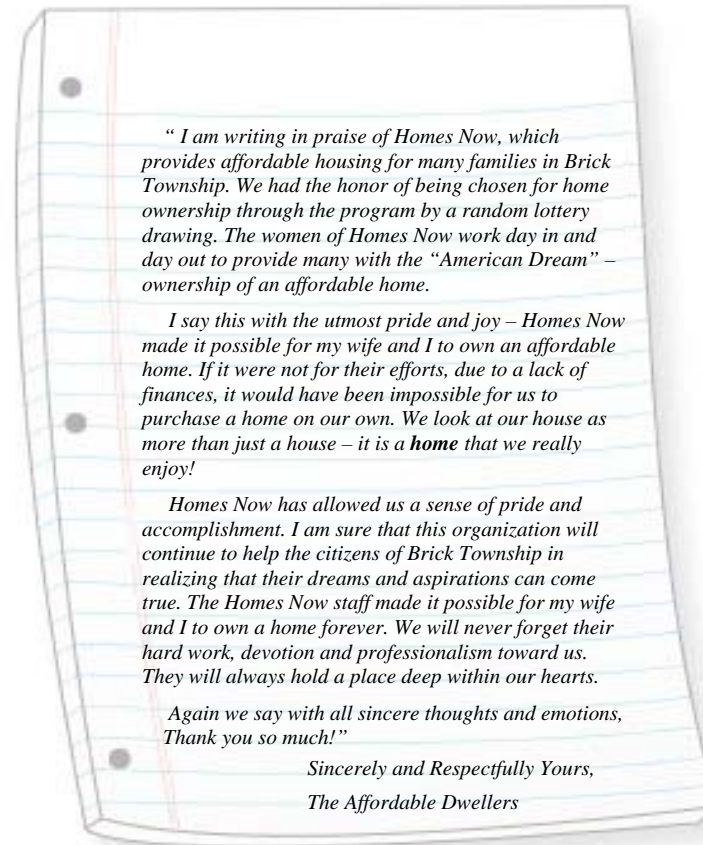 “ I am writing in praise of Homes Now, which
provides affordable housing for many families in Brick
Township. We had the honor of being chosen for home
ownership through the program by a random lottery
drawing. The women of Homes Now work day in and
day out to provide many with the “American Dream” –
ownership of an affordable home.
I say this with the utmost pride and joy – Homes Now
made it possible for my wife and I to own an affordable
home. If it were not for their efforts, due to a lack of
finances, it would have been impossible for us to
purchase a home on our own. We look at our house as
more than just a house – it is a home that we really
enjoy!
Homes Now has allowed us a sense of pride and
accomplishment. I am sure that this organization will
continue to help the citizens of Brick Township in
realizing that their dreams and aspirations can come
true. The Homes Now staff made it possible for my wife
and I to own a home forever. We will never forget their
hard work, devotion and professionalism toward us.
They will always hold a place deep within our hearts.
Again we say with all sincere thoughts and emotions,
Thank you so much!”
Sincerely and Respectfully Yours,
The Affordable Dwellers